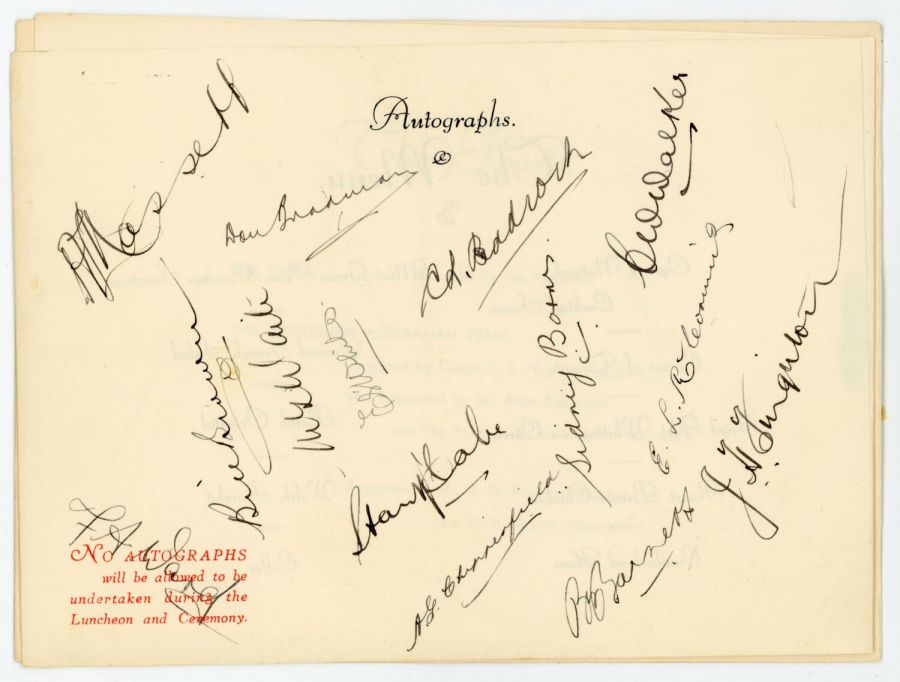 Autographs.
Hassett
Don Bradman
C. L. Badcock
C W Walker
Bill Brown
M G Waite
E S White
Stan McCabe
Sidney Barnes
A G Chipperfield
B A Barnett
J. H. Fingleton
F. A. Ward
NO AUTOGRAPHS
will be allowed to be
undertaken during the
Luncheon and Ceremony.